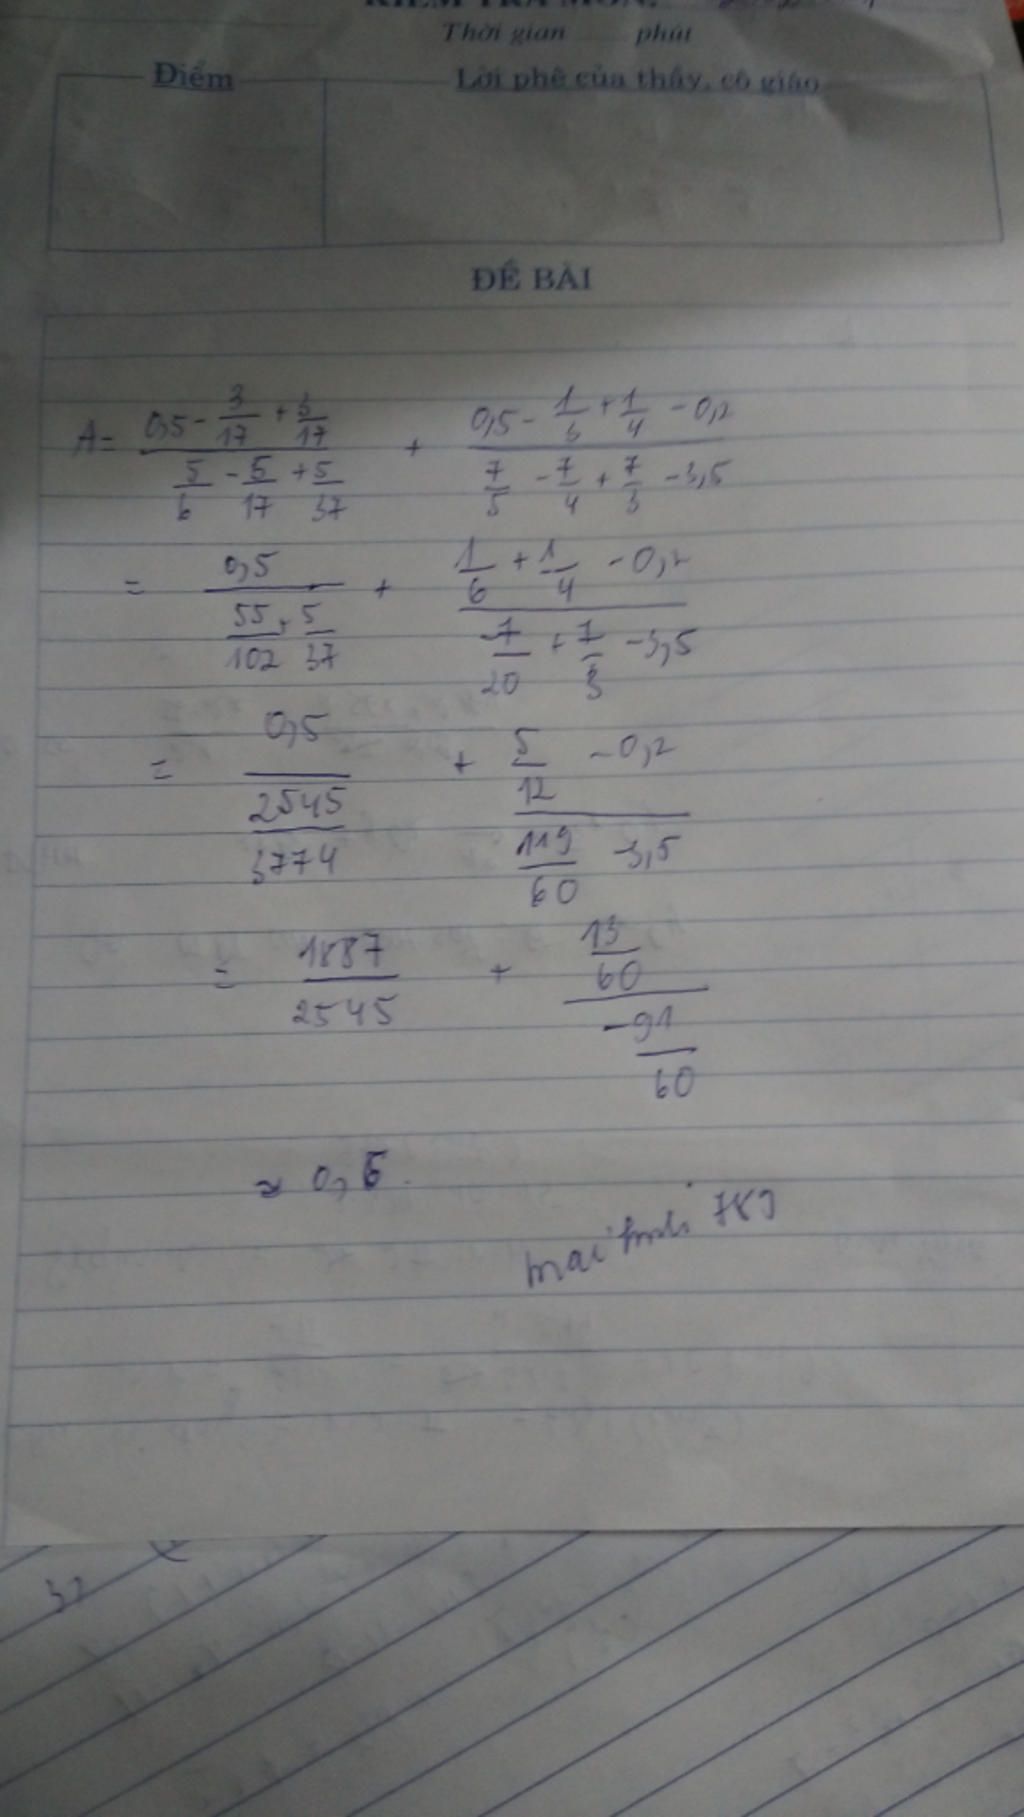 KIỂM TRA MÔN:
Thời gian phút
Điểm Lời phê của thầy, cô giáo
ĐỀ BÀI
A = (0,5 - 3/17 + 3/17)/(5/6 - 5/17 + 5/37) + (0,5 - 1/3 + 1/4 - 0,2)/(7/5 - 7/4 + 7/3 - 3,5)
= 0,5/(55/102 + 5/37) + (1/6 + 1/4 - 0,2)/(-7/20 + 7/3 - 3,5)
= 0,5/(2545/3774) + (5/12 - 0,2)/(119/60 - 3,5)
= 1887/2545 + (13/60)/(-91/60)
≈ 0,6.
37